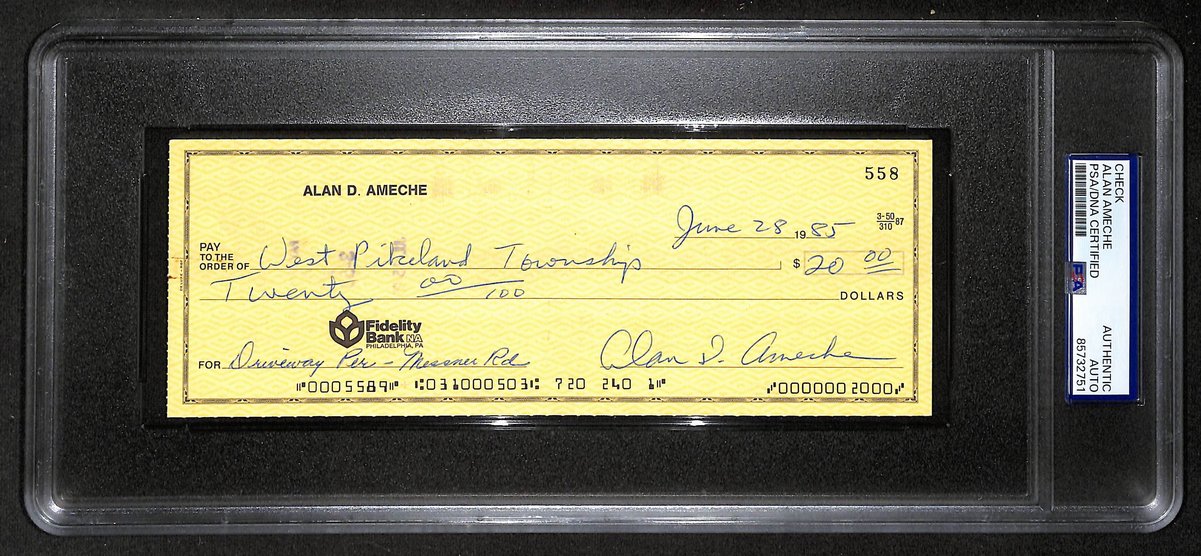 558
ALAN D. AMECHE
June 28 1985
3-50 87
310
PAY
TO THE
ORDER OF West Pikeland Township $ 20 00
Twenty 00/100 DOLLARS
Fidelity
Bank NA
PHILADELPHIA, PA
FOR Driveway Per - Messner Rd Alan D. Ameche
⑈0005589⑈ ⑆031000503⑆ 720 240 1⑈ ⑇0000002000⑇
CHECK
ALAN AMECHE
PSA/DNA CERTIFIED
PSA
AUTHENTIC
AUTO
85732751